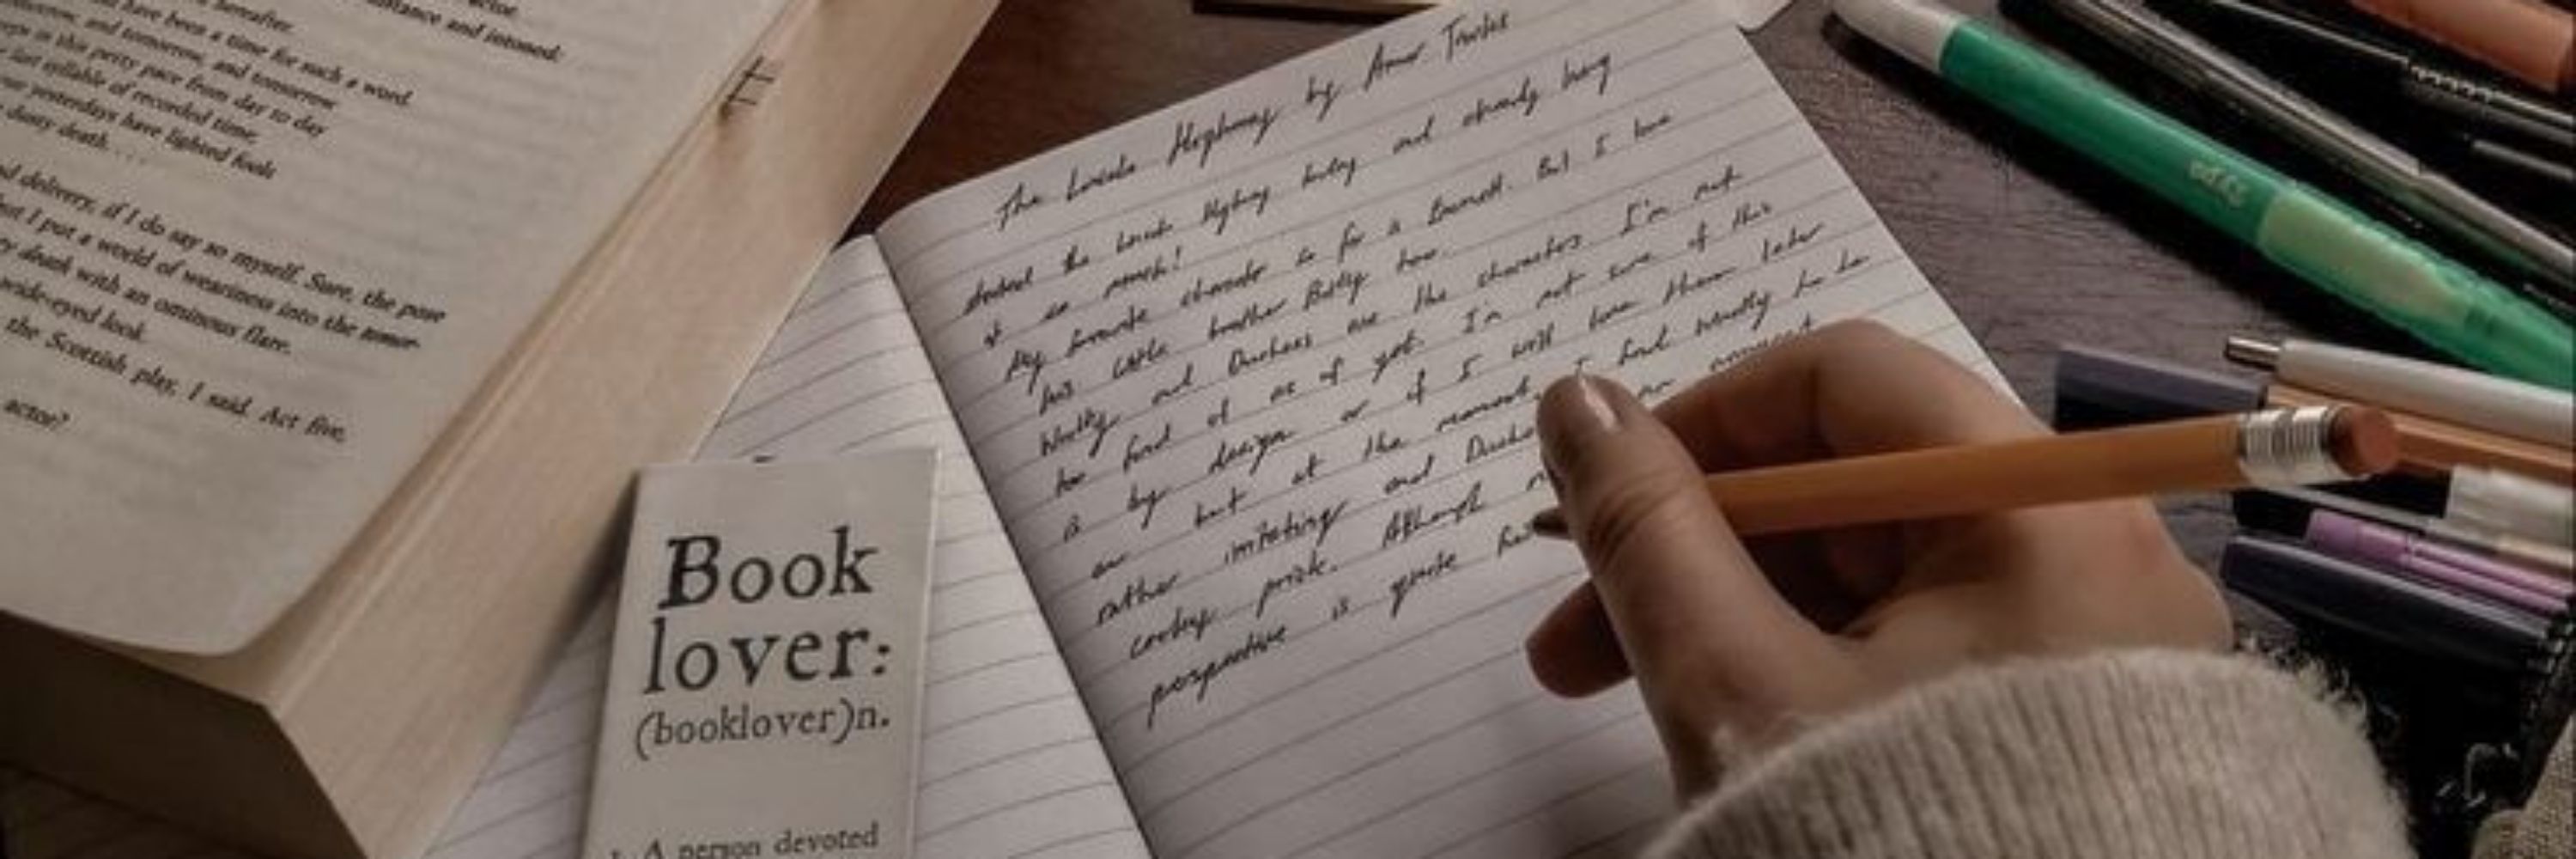 actor.
distance and intoned:
hereafter.
have been a time for such a word.
and tomorrow, and tomorrow
in this petty pace from day to day
last syllable of recorded time;
our yesterdays have lighted fools
dusty death. . . .
delivery, if I do say so myself. Sure, the pose
but I put a world of weariness into the tomor-
death with an ominous flare.
wide-eyed look.
the Scottish play, I said. Act five,
actor?
Book
lover:
(booklover)n.
1. A person devoted
The Lincoln Highway by Amor Towles
started the Lincoln Highway today and already loving
it so much!
My favourite character so far is Emmett. But I love
his little brother Billy too.
Woolly and Duchess are the characters I'm not
too fond of as of yet. I'm not sure if this
is by design or if I will love them later
on but at the moment, I find Woolly to be
rather irritating and Duchess an arrogant
cocky prick. Although
perspective is quite